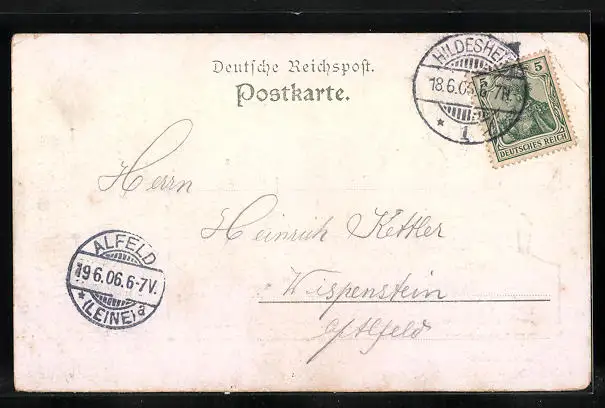 Deutsche Reichspost.
Postkarte.
HILDESHEIM
18.6.06. 6-7N.
* 1
5 5
DEUTSCHES REICH
Herrn
Heinrich Kettler
Wispenstein
b/Alfeld
ALFELD
19.6.06.6-7V.
* (LEINE) a